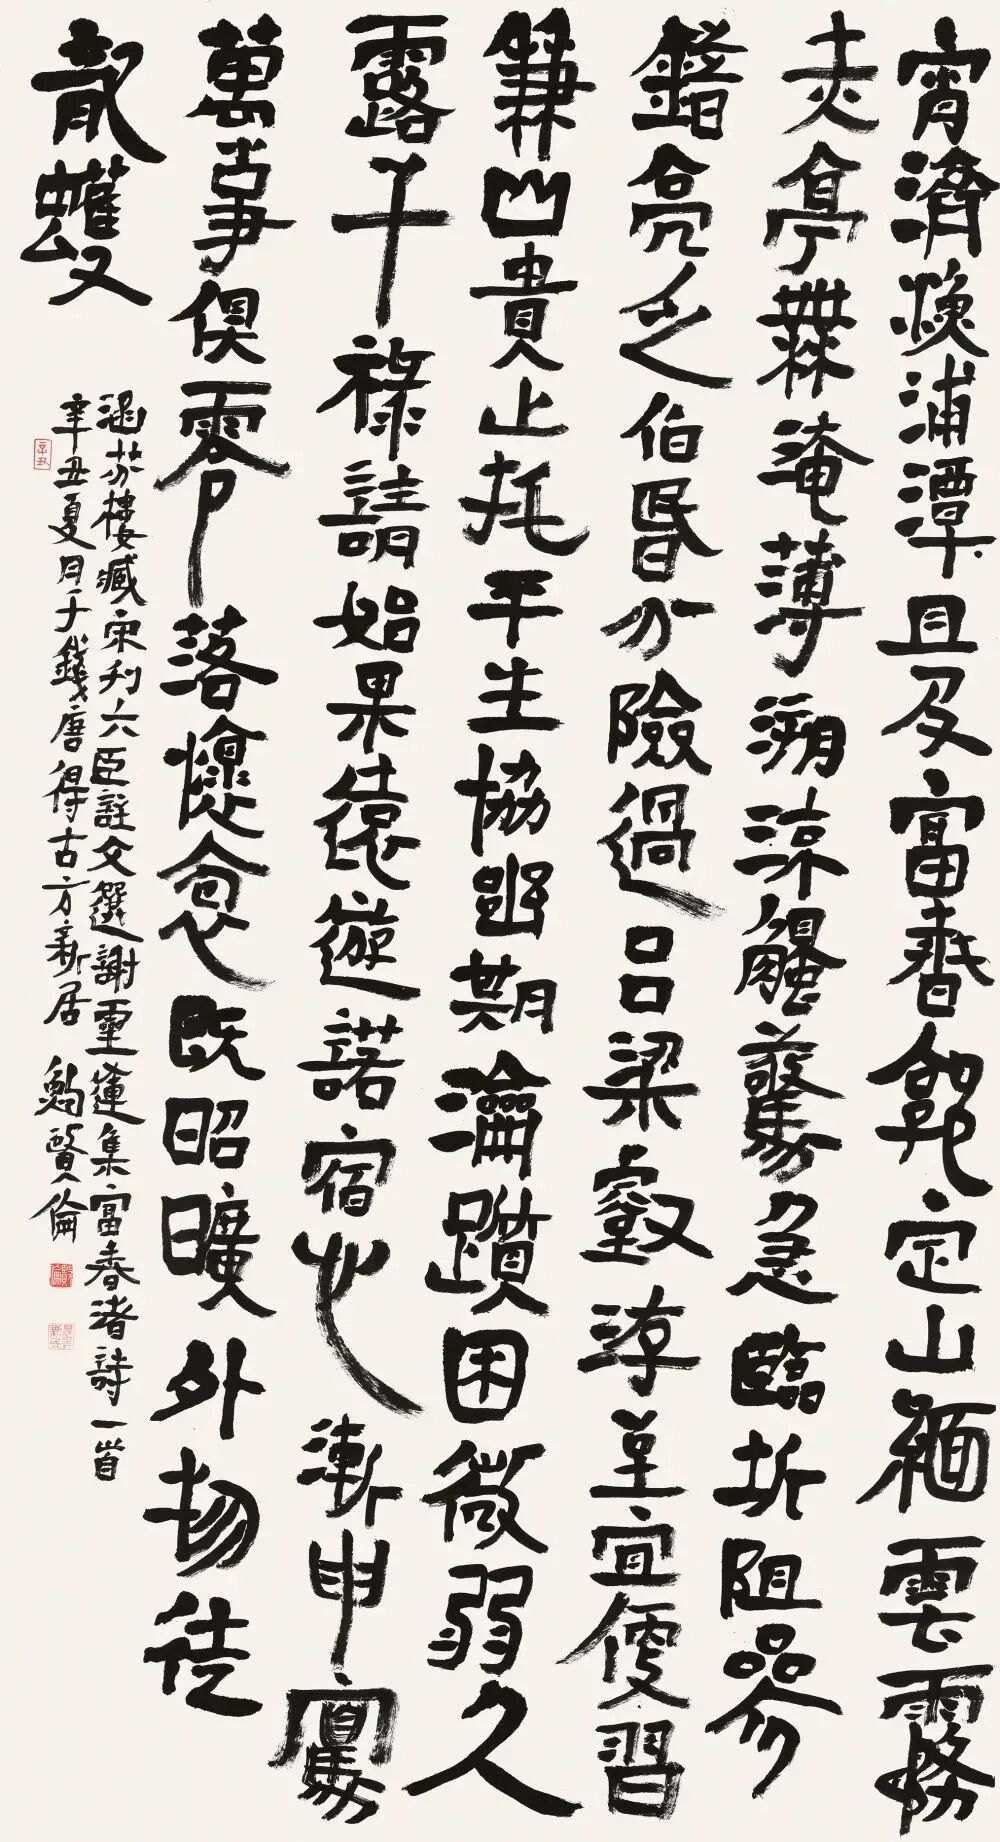 宵濟漁浦潭旦及富春郭定山緬雲霧
赤亭無淹薄溯流觸驚急臨圻阻參
錯亮乏伯昏分險過呂梁壑洊至宜便習
兼山貴止托平生協幽期淪躓困微弱久
露干祿請始果遠遊諾宿心漸申寫
萬事俱零落懷抱既昭曠外物徒
龍蠖
涵芬樓臧宋刊六臣註文選謝靈運集富春渚詩一首
辛丑夏月于錢唐得古方新居 鮑賢倫
辛丑
賢倫